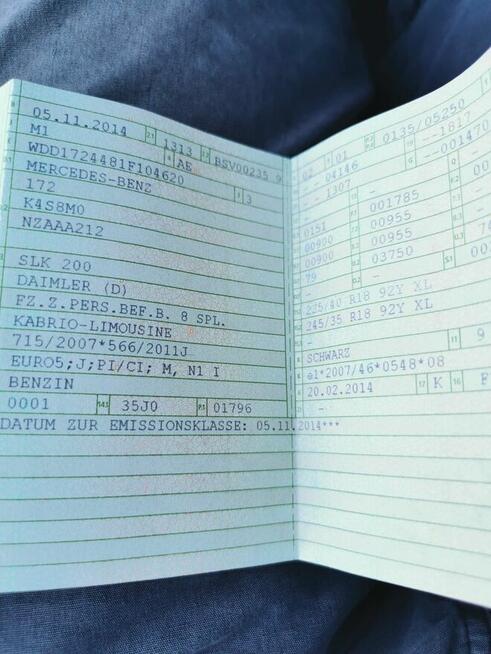 05.11.2014 2.1 1313 2.2 BSV00235 9
M1 4 AE
WDD1724481F104620 3 3
MERCEDES-BENZ
172
K4S8M0
NZAAA212
SLK 200
DAIMLER (D)
FZ.Z.PERS.BEF.B. 8 SPL.
KABRIO-LIMOUSINE
715/2007*566/2011J
EURO5;J;PI/CI; M, N1 I
BENZIN
0001 14.1 35J0 P.1 01796
DATUM ZUR EMISSIONSKLASSE: 05.11.2014***
02 01 0135/05250
--04146 --1817
--1307 --001470
-
0151 001785
00900 00955
00900 00955
79 03750
- -
225/40 R18 92Y XL
245/35 R18 92Y XL
-
SCHWARZ 11 9
e1*2007/46*0548*08
20.02.2014 17 K 16 F
-